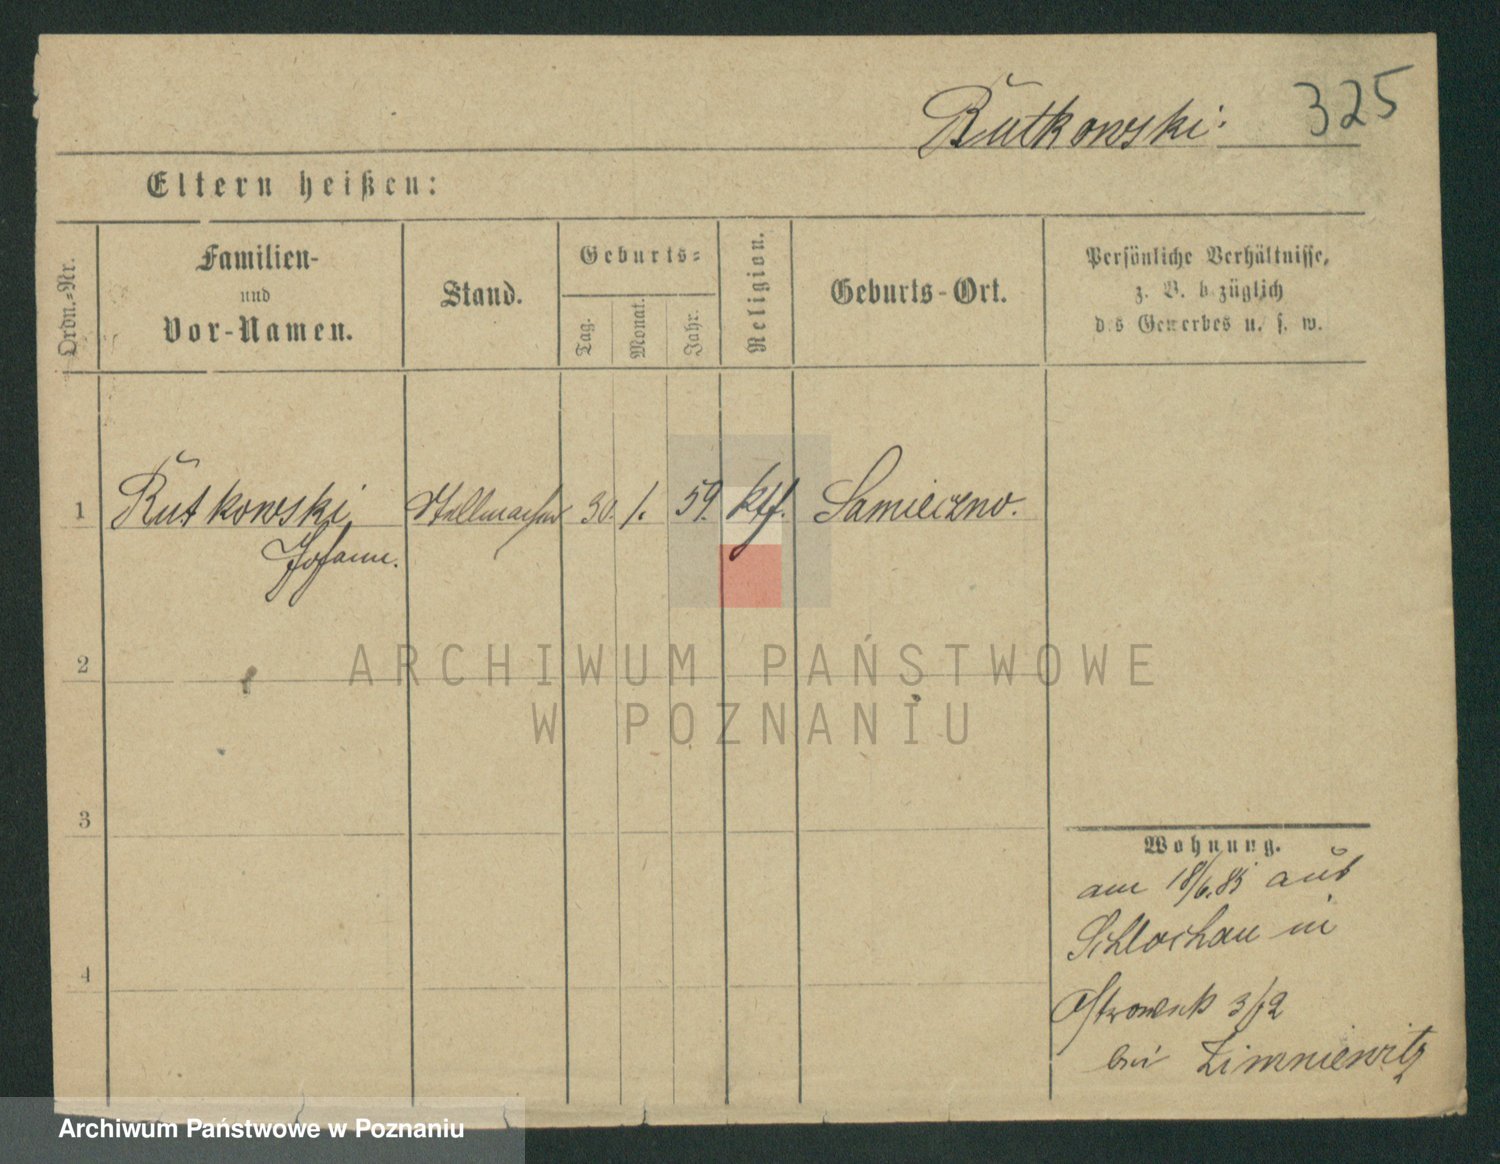 Rutkowski. 325
Eltern heißen:
Ordn.-Nr.
Familien-
und
Vor-Namen.
Stand.
Geburts-
Tag.
Monat.
Jahr.
Religion.
Geburts-Ort.
Persönliche Verhältnisse,
z. B. bezüglich
des Gewerbes u. s. w.
1 Rutkowski Stellmacher 30. 1. 59. ktf. Samieczno.
Johann.
2
3
4
Wohnung.
am 18/6.85 aus
Schlochau in
Ostrowek 3/12
bei Zimniewitz
ARCHIWUM PAŃSTWOWE
W POZNANIU
Archiwum Państwowe w Poznaniu